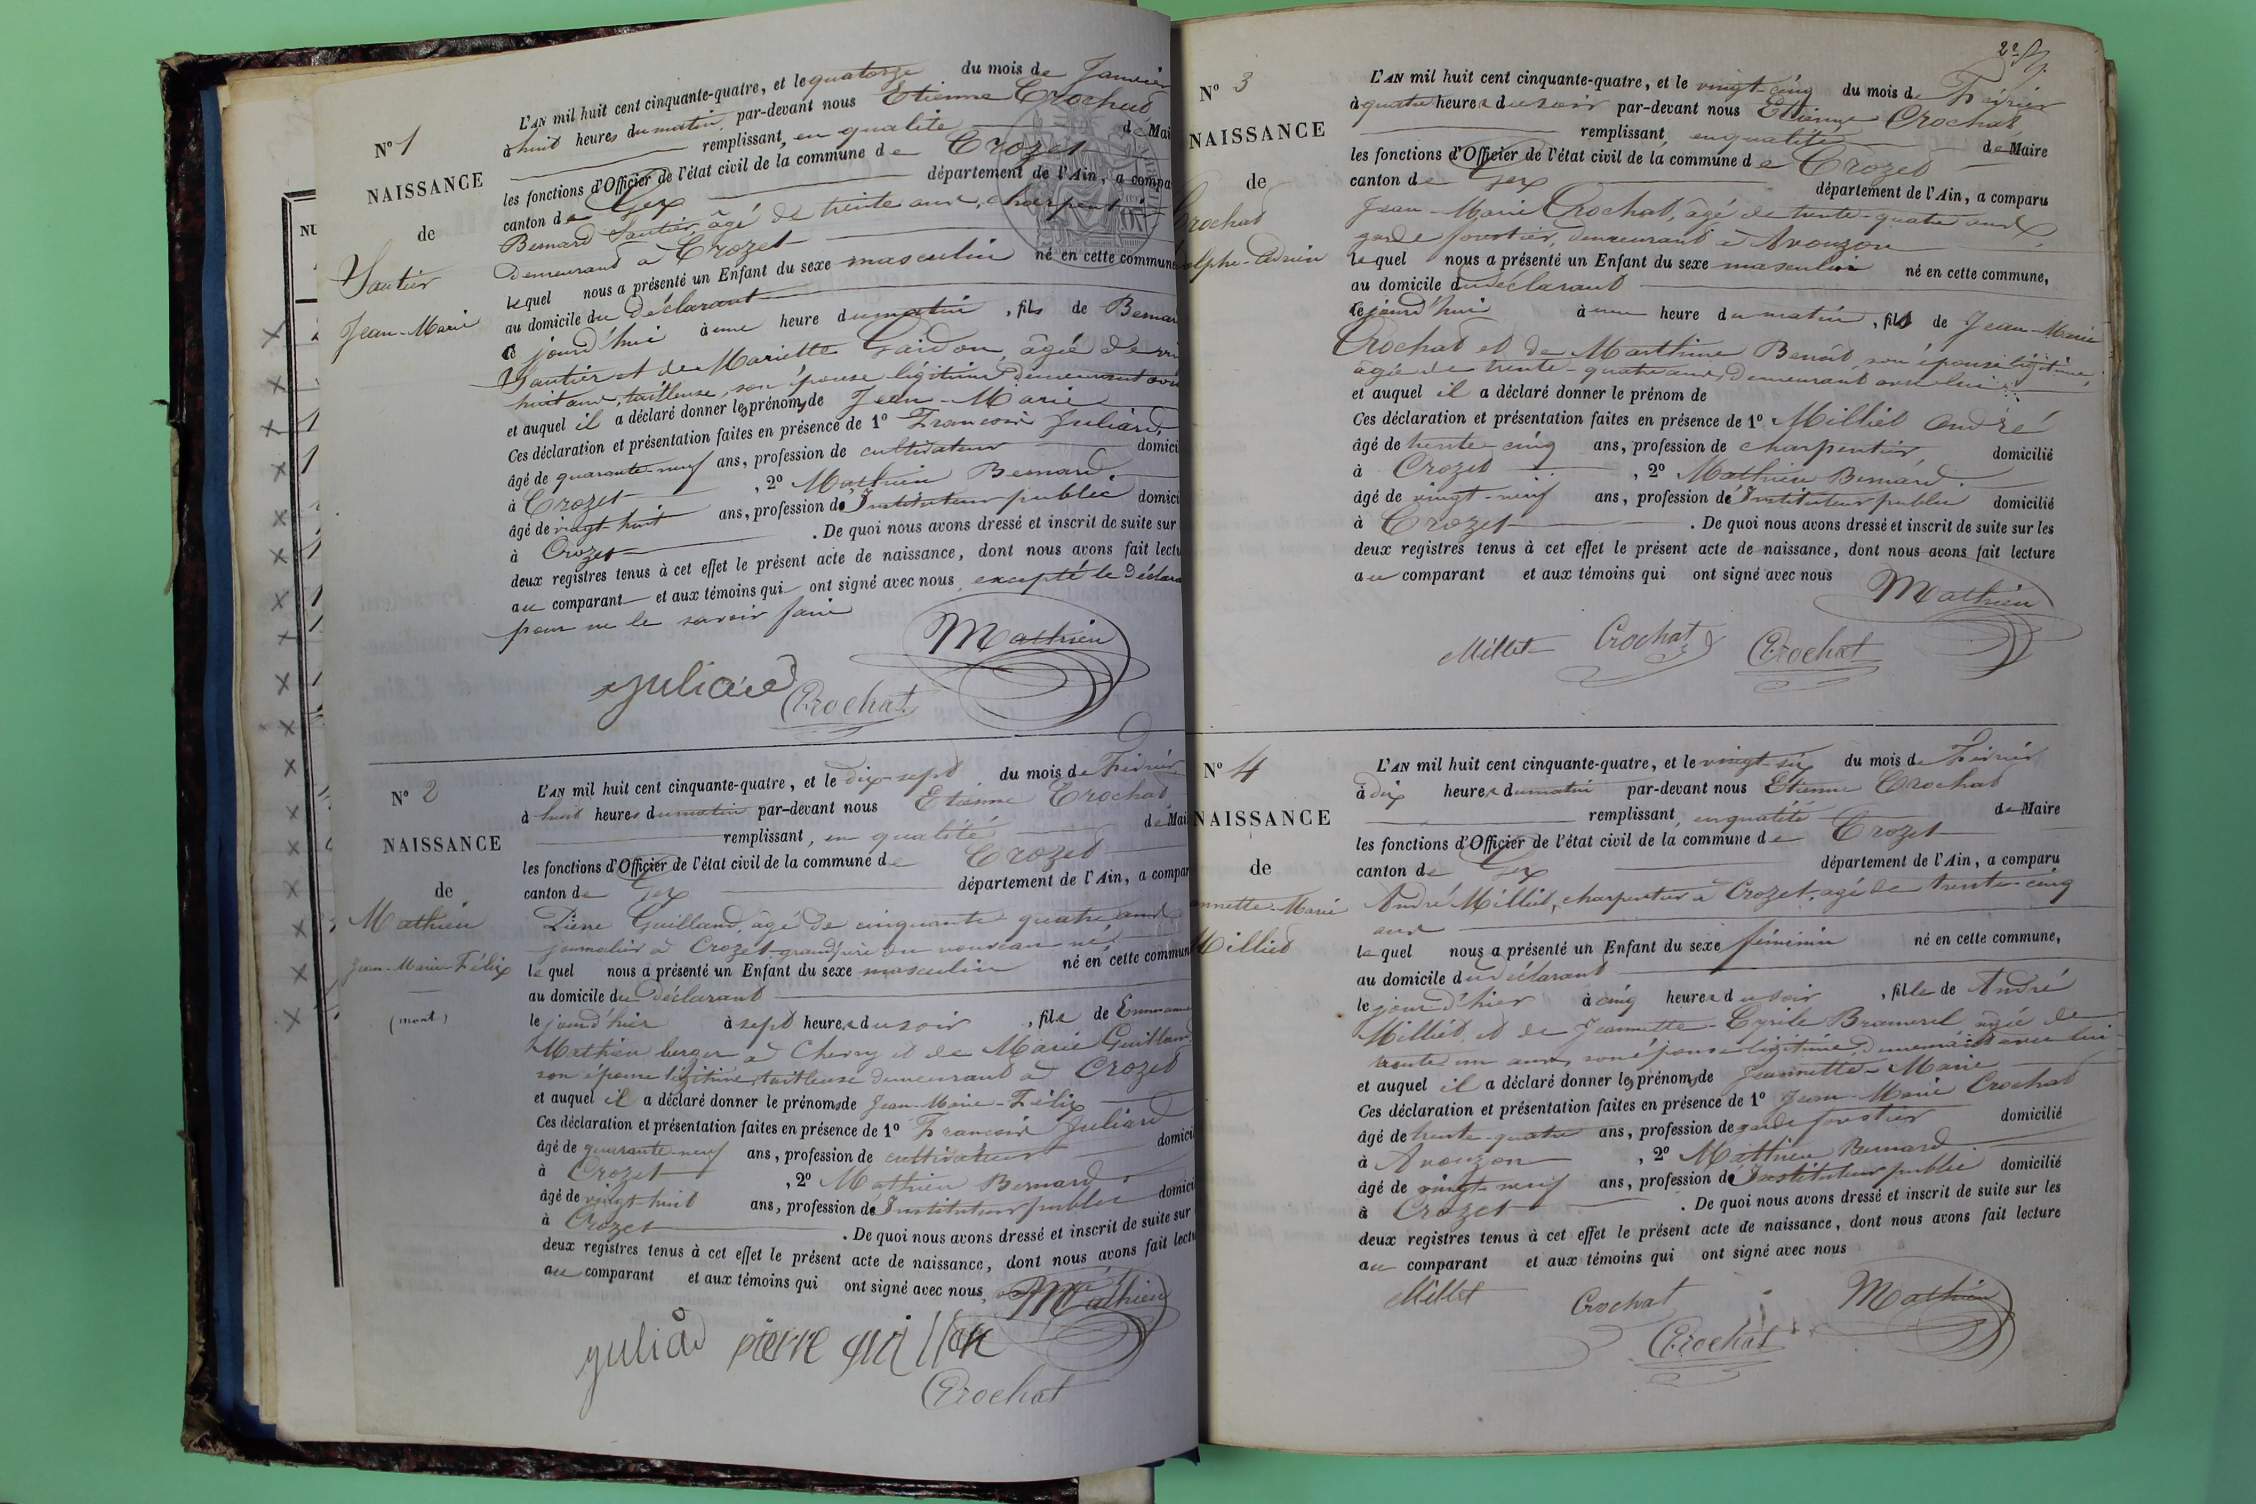 N° 1
NAISSANCE
de
Sautier
Jean-Marie
L'AN mil huit cent cinquante-quatre, et le quatorze du mois de Janvier
à huit heures du matin par-devant nous Etienne Crochat
remplissant, en qualité de Mai
les fonctions d'Officier de l'état civil de la commune de Crozet
canton de Gex département de l'Ain, a compa
Bernard Sautier, âgé de trente ans, charpentier
demeurant à Crozet
lequel nous a présenté un Enfant du sexe masculin né en cette commune
au domicile du déclarant
ce jourd'hui à une heure du matin, fils de Bernar
Sautier et de Mariette Gaidon, âgée de vin
huit ans, tailleuse, son épouse légitime demeurant avec
et auquel il a déclaré donner les prénoms de Jean-Marie
Ces déclaration et présentation faites en présence de 1° François Juliard
âgé de quarante-neuf ans, profession de cultivateur domici
à Crozet, 2° Mathieu Bernard
âgé de vingt-huit ans, profession de Instituteur public domici
à Crozet. De quoi nous avons dressé et inscrit de suite sur
deux registres tenus à cet effet le présent acte de naissance, dont nous avons fait lectu
au comparant et aux témoins qui ont signé avec nous excepté le déclara
pour ne le savoir faire
Mathieu
juliard
Crochat
N° 2
NAISSANCE
de
Mathieu
Jean-Marie-Félix
(mort)
L'AN mil huit cent cinquante-quatre, et le dix-sept du mois de Février
à huit heures du matin par-devant nous Etienne Crochat
remplissant, en qualité de Mai
les fonctions d'Officier de l'état civil de la commune de Crozet
canton de Gex département de l'Ain, a compar
Pierre Guilland, âgé de cinquante quatre ans
journalier à Crozet grand-père du nouveau né,
lequel nous a présenté un Enfant du sexe masculin né en cette commun
au domicile du déclarant
le jourd'hier à sept heures du soir, fils de Emmanue
Mathieu berger à Chevry et de Marie Guilland
son épouse légitime, tailleuse demeurant à Crozet
et auquel il a déclaré donner le prénoms de Jean-Marie-Félix
Ces déclaration et présentation faites en présence de 1° François Juliard
âgé de quarante-neuf ans, profession de cultivateur domici
à Crozet, 2° Mathieu Bernard
âgé de vingt-huit ans, profession de Instituteur public domici
à Crozet. De quoi nous avons dressé et inscrit de suite sur
deux registres tenus à cet effet le présent acte de naissance, dont nous avons fait lectu
au comparant et aux témoins qui ont signé avec nous
Mathieu
juliad pierre guillan
Crochat
N° 3
NAISSANCE
de
Crochat
olphe-Adrien
L'AN mil huit cent cinquante-quatre, et le vingt-cinq du mois de Février
à quatre heures du soir par-devant nous Etienne Crochat
remplissant, en qualité de Maire
les fonctions d'Officier de l'état civil de la commune de Crozet
canton de Gex département de l'Ain, a comparu
Jean-Marie Crochat, âgé de trente-quatre ans
garde forestier, demeurant à Avouzon
lequel nous a présenté un Enfant du sexe masculin né en cette commune,
au domicile du déclarant
ce jourd'hui à une heure du matin, fils de Jean-Marie
Crochat et de Marthine Benoît, son épouse légitime,
âgée de trente-quatre ans, demeurant avec lui
et auquel il a déclaré donner le prénom de
Ces déclaration et présentation faites en présence de 1° Milliet André
âgé de trente-cinq ans, profession de charpentier domicilié
à Crozet, 2° Mathieu Bernard
âgé de vingt-neuf ans, profession de Instituteur public domicilié
à Crozet. De quoi nous avons dressé et inscrit de suite sur les
deux registres tenus à cet effet le présent acte de naissance, dont nous avons fait lecture
au comparant et aux témoins qui ont signé avec nous
Mathieu
Millet Crochat Crochat
N° 4
NAISSANCE
de
annette-Marie
Milliet
L'AN mil huit cent cinquante-quatre, et le vingt-six du mois de Février
à dix heures du matin par-devant nous Etienne Crochat
remplissant, en qualité de Maire
les fonctions d'Officier de l'état civil de la commune de Crozet
canton de Gex département de l'Ain, a comparu
André Milliet, charpentier à Crozet, âgé de trente-cinq
ans
lequel nous a présenté un Enfant du sexe féminin né en cette commune,
au domicile du déclarant
le jourd'hier à cinq heures du soir, fille de André
Milliet et de Jeannette-Cyrile Bramerel âgée de
trente un ans, son épouse légitime, demeurant avec lui
et auquel il a déclaré donner les prénoms de Jeannette-Marie
Ces déclaration et présentation faites en présence de 1° Jean-Marie Crochat
âgé de trente-quatre ans, profession de garde forestier domicilié
à Avouzon, 2° Mathieu Bernard
âgé de vingt-neuf ans, profession de Instituteur public domicilié
à Crozet. De quoi nous avons dressé et inscrit de suite sur les
deux registres tenus à cet effet le présent acte de naissance, dont nous avons fait lecture
au comparant et aux témoins qui ont signé avec nous
Millet Crochat Mathieu
Crochat